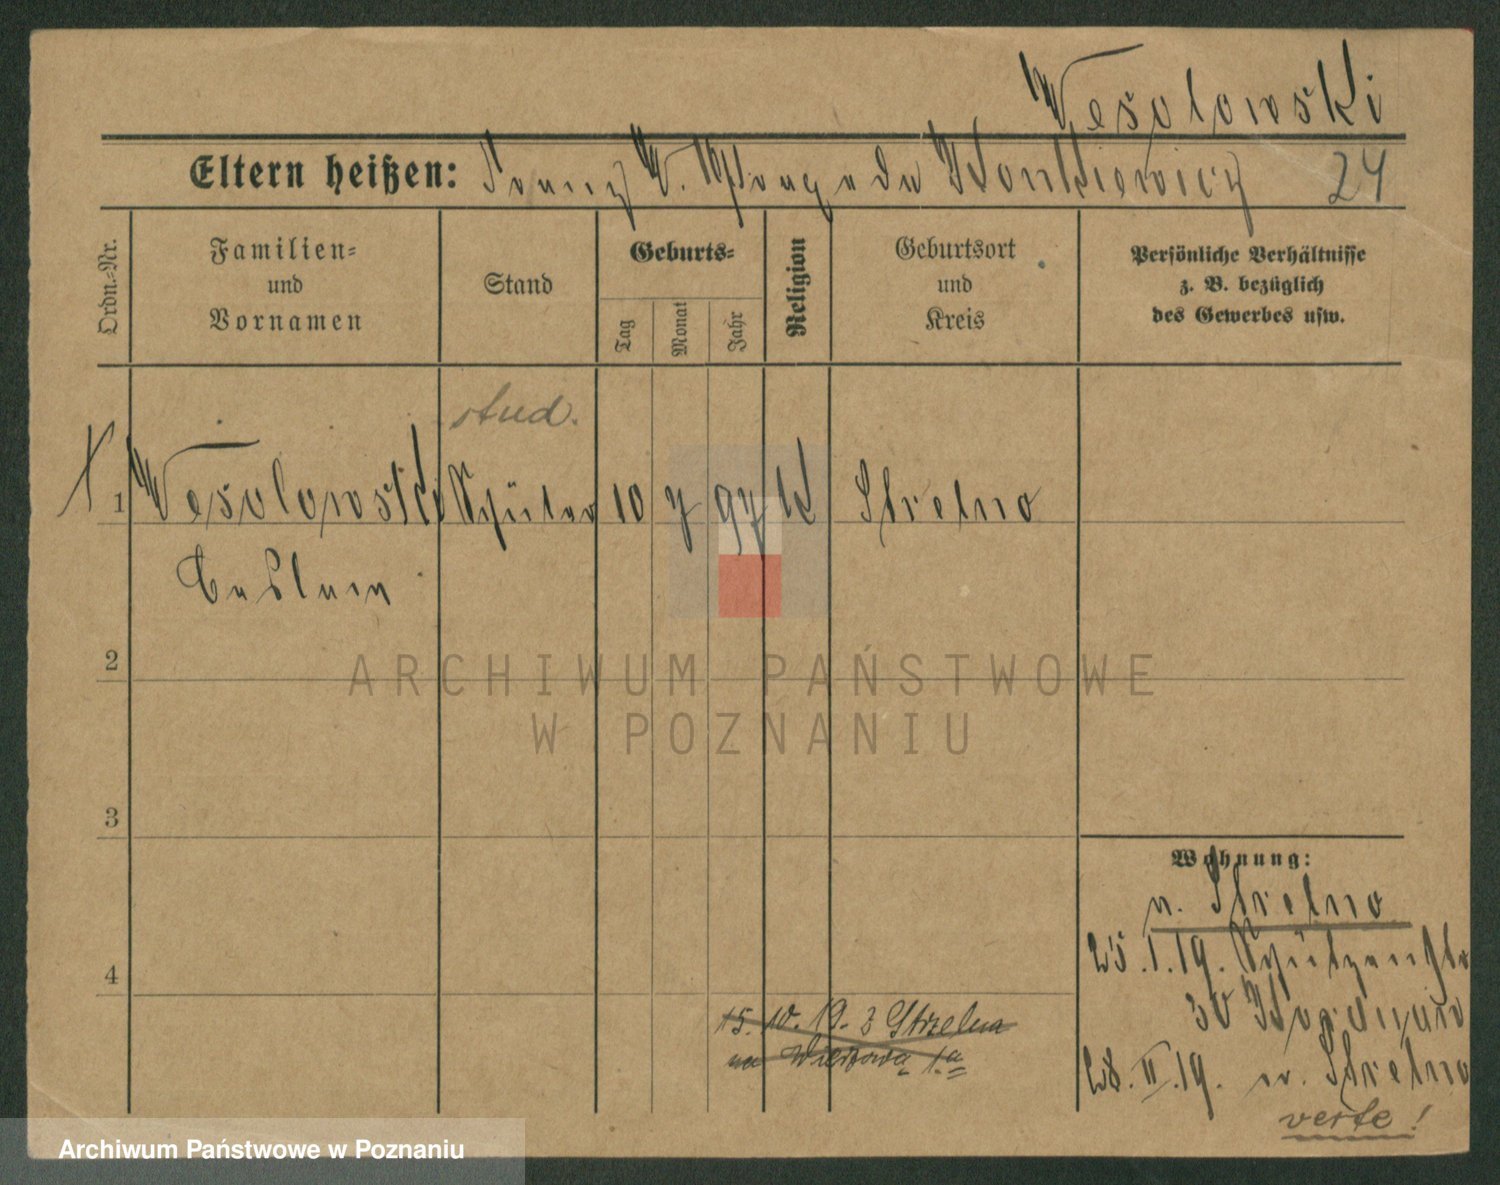 Wesolowski
Eltern heißen: Franz W. Konkiewicz 24
Ordn.=Nr.
Familien=
und
Vornamen
Stand
Geburts=
Tag
Monat
Jahr
Religion
Geburtsort
und
Kreis
Persönliche Verhältnisse
z. B. bezüglich
des Gewerbes usw.
stud.
1 Wesolowski Schüler 10 7 97 K Strelno
2
3
4
Wohnung:
n. Strelno
25.1.19. Schützenstr
30
28.II.19. n. Strelno
verte!
15.10.19. z Strzelna
na 1.a
ARCHIWUM PAŃSTWOWE
W POZNANIU
Archiwum Państwowe w Poznaniu